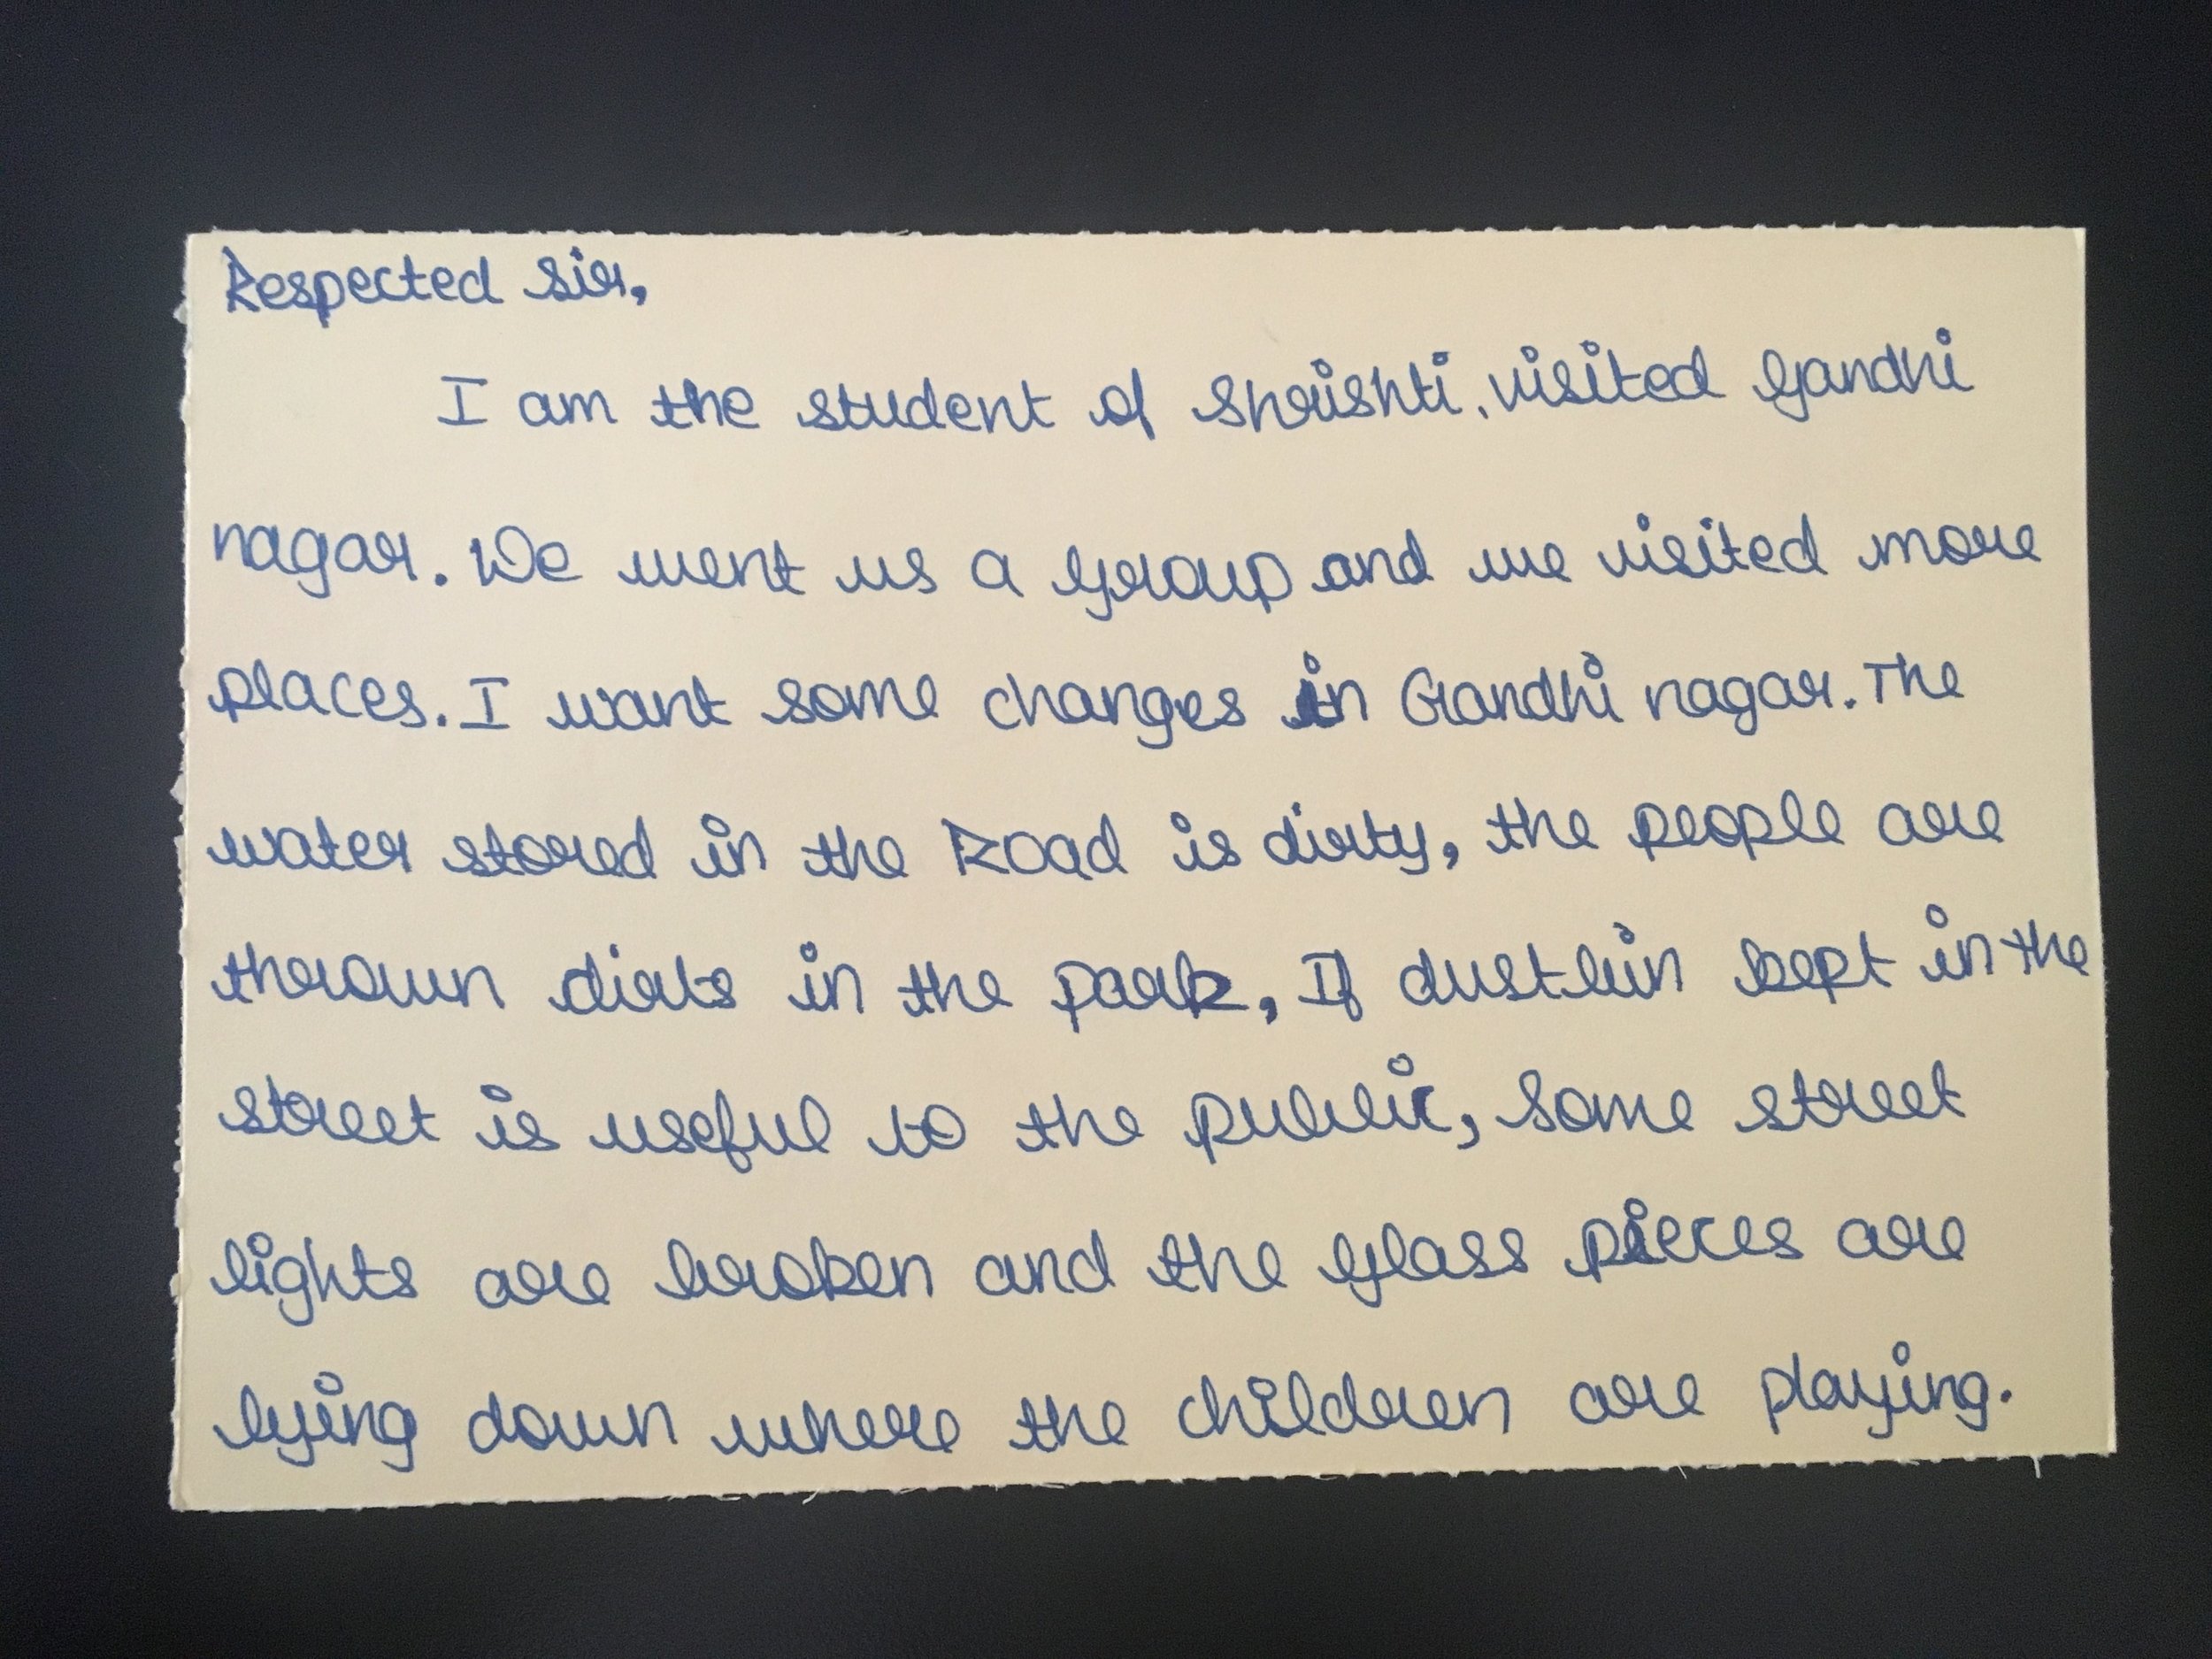 Respected sir,
I am the student of Shrishti, visited Gandhi
nagar. We went us a group and we visited more
places. I want some changes in Gandhi nagar. The
water stored in the Road is dirty, the people are
thrown dirts in the park, If dustbin kept in the
street is useful to the public, some street
lights are broken and the glass pieces are
lying down where the children are playing.